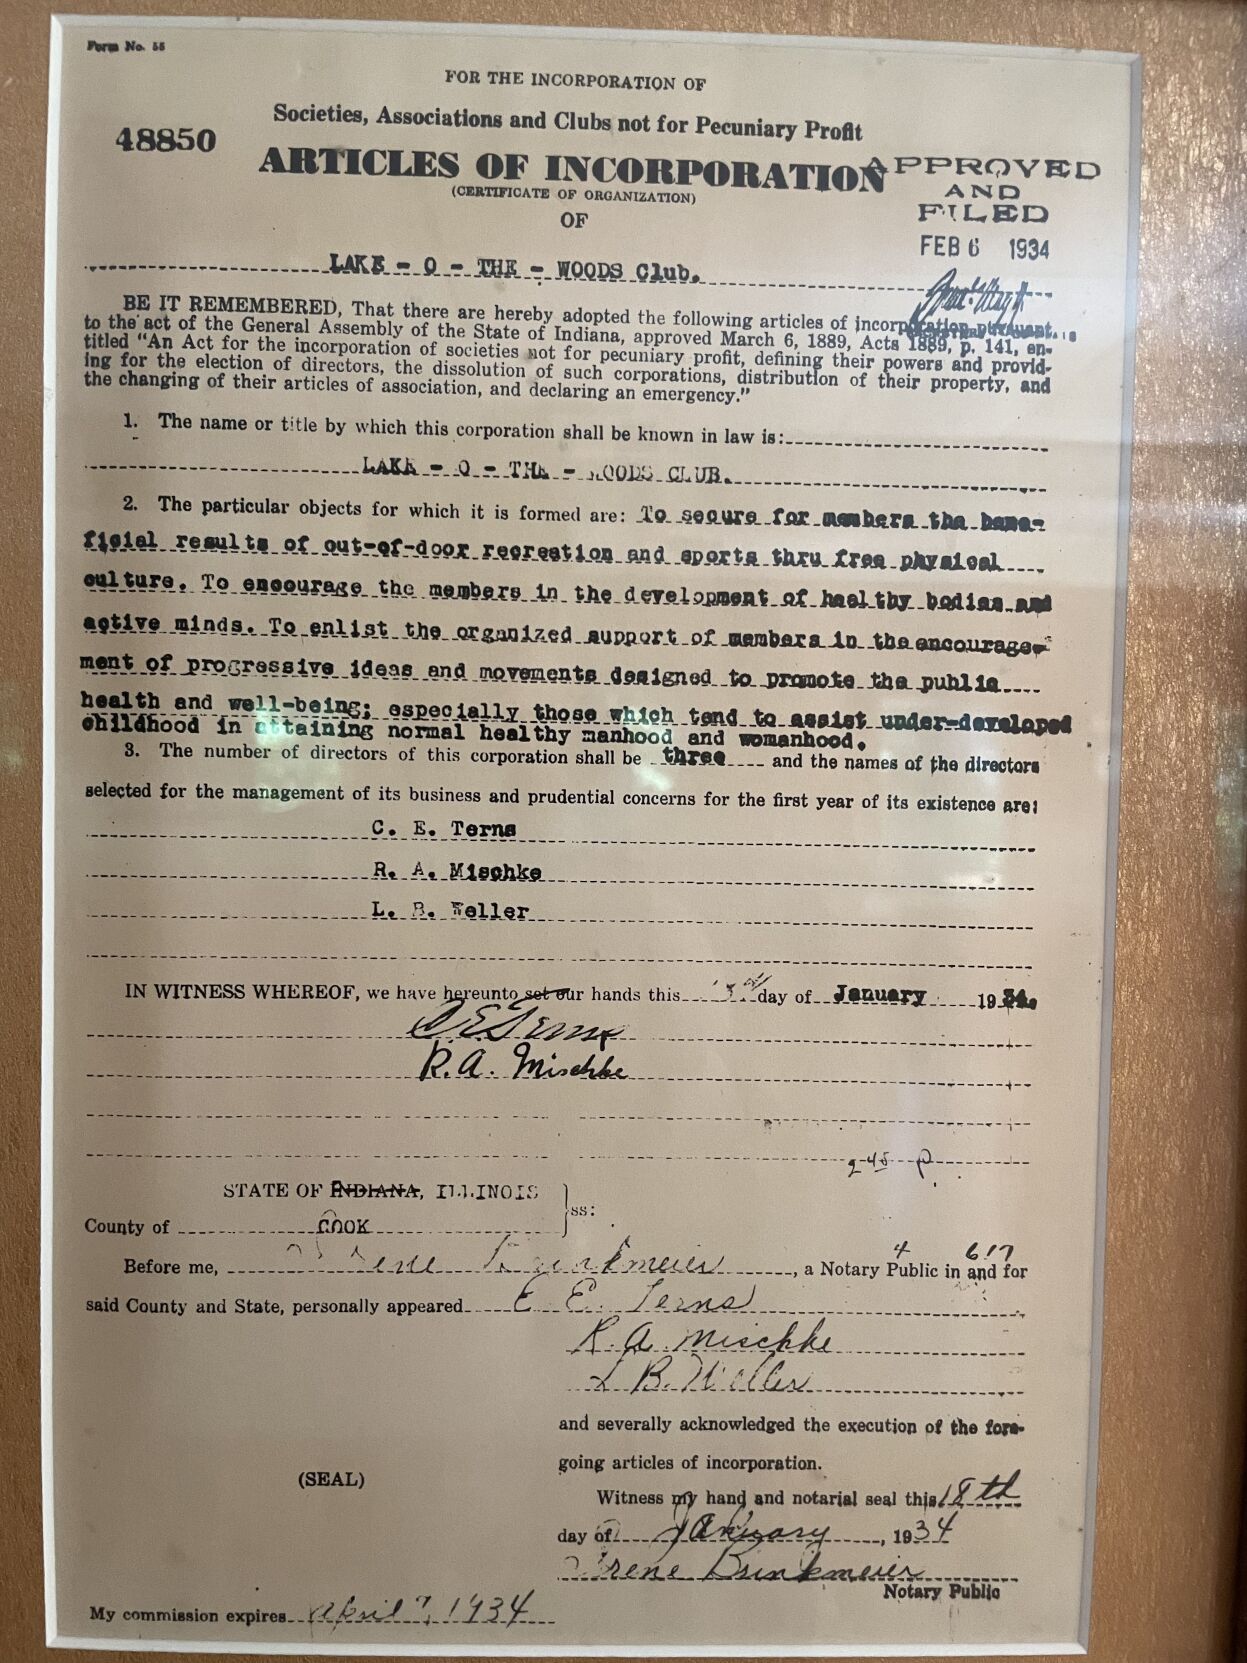 Form No. 55
FOR THE INCORPORATION OF
Societies, Associations and Clubs not for Pecuniary Profit
48850
ARTICLES OF INCORPORATION
APPROVED
AND
FILED
FEB 6 1934
(CERTIFICATE OF ORGANIZATION)
OF
LAKE - O - THE - WOODS Club.
BE IT REMEMBERED, That there are hereby adopted the following articles of incorporation pursuant
to the act of the General Assembly of the State of Indiana, approved March 6, 1889, Acts 1889, p. 141, en-
titled "An Act for the incorporation of societies not for pecuniary profit, defining their powers and provid-
ing for the election of directors, the dissolution of such corporations, distribution of their property, and
the changing of their articles of association, and declaring an emergency."
1. The name or title by which this corporation shall be known in law is:
LAKE - O - THE - WOODS CLUB.
2. The particular objects for which it is formed are: To secure for members the bene-
ficial results of out-of-door recreation and sports thru free physical
culture. To encourage the members in the development of healthy bodies and
active minds. To enlist the organized support of members in the encourage-
ment of progressive ideas and movements designed to promote the public
health and well-being; especially those which tend to assist under-developed
childhood in attaining normal healthy manhood and womanhood.
3. The number of directors of this corporation shall be three and the names of the directors
selected for the management of its business and prudential concerns for the first year of its existence are:
C. E. Terns
R. A. Mischke
L. B. Weller
IN WITNESS WHEREOF, we have hereunto set our hands this day of January 1934.
C E Terns
R. A. Mischke
2 45 P.
STATE OF INDIANA, ILLINOIS
ss:
County of COOK
Before me, Irene Brinkmeier, a Notary Public in and for
said County and State, personally appeared C E. Terns
R. A. Mischke
L B. Weller
and severally acknowledged the execution of the fore-
going articles of incorporation.
(SEAL)
Witness my hand and notarial seal this 18th
day of January, 1934
Irene Brinkmeier
Notary Public
My commission expires April 7, 1934